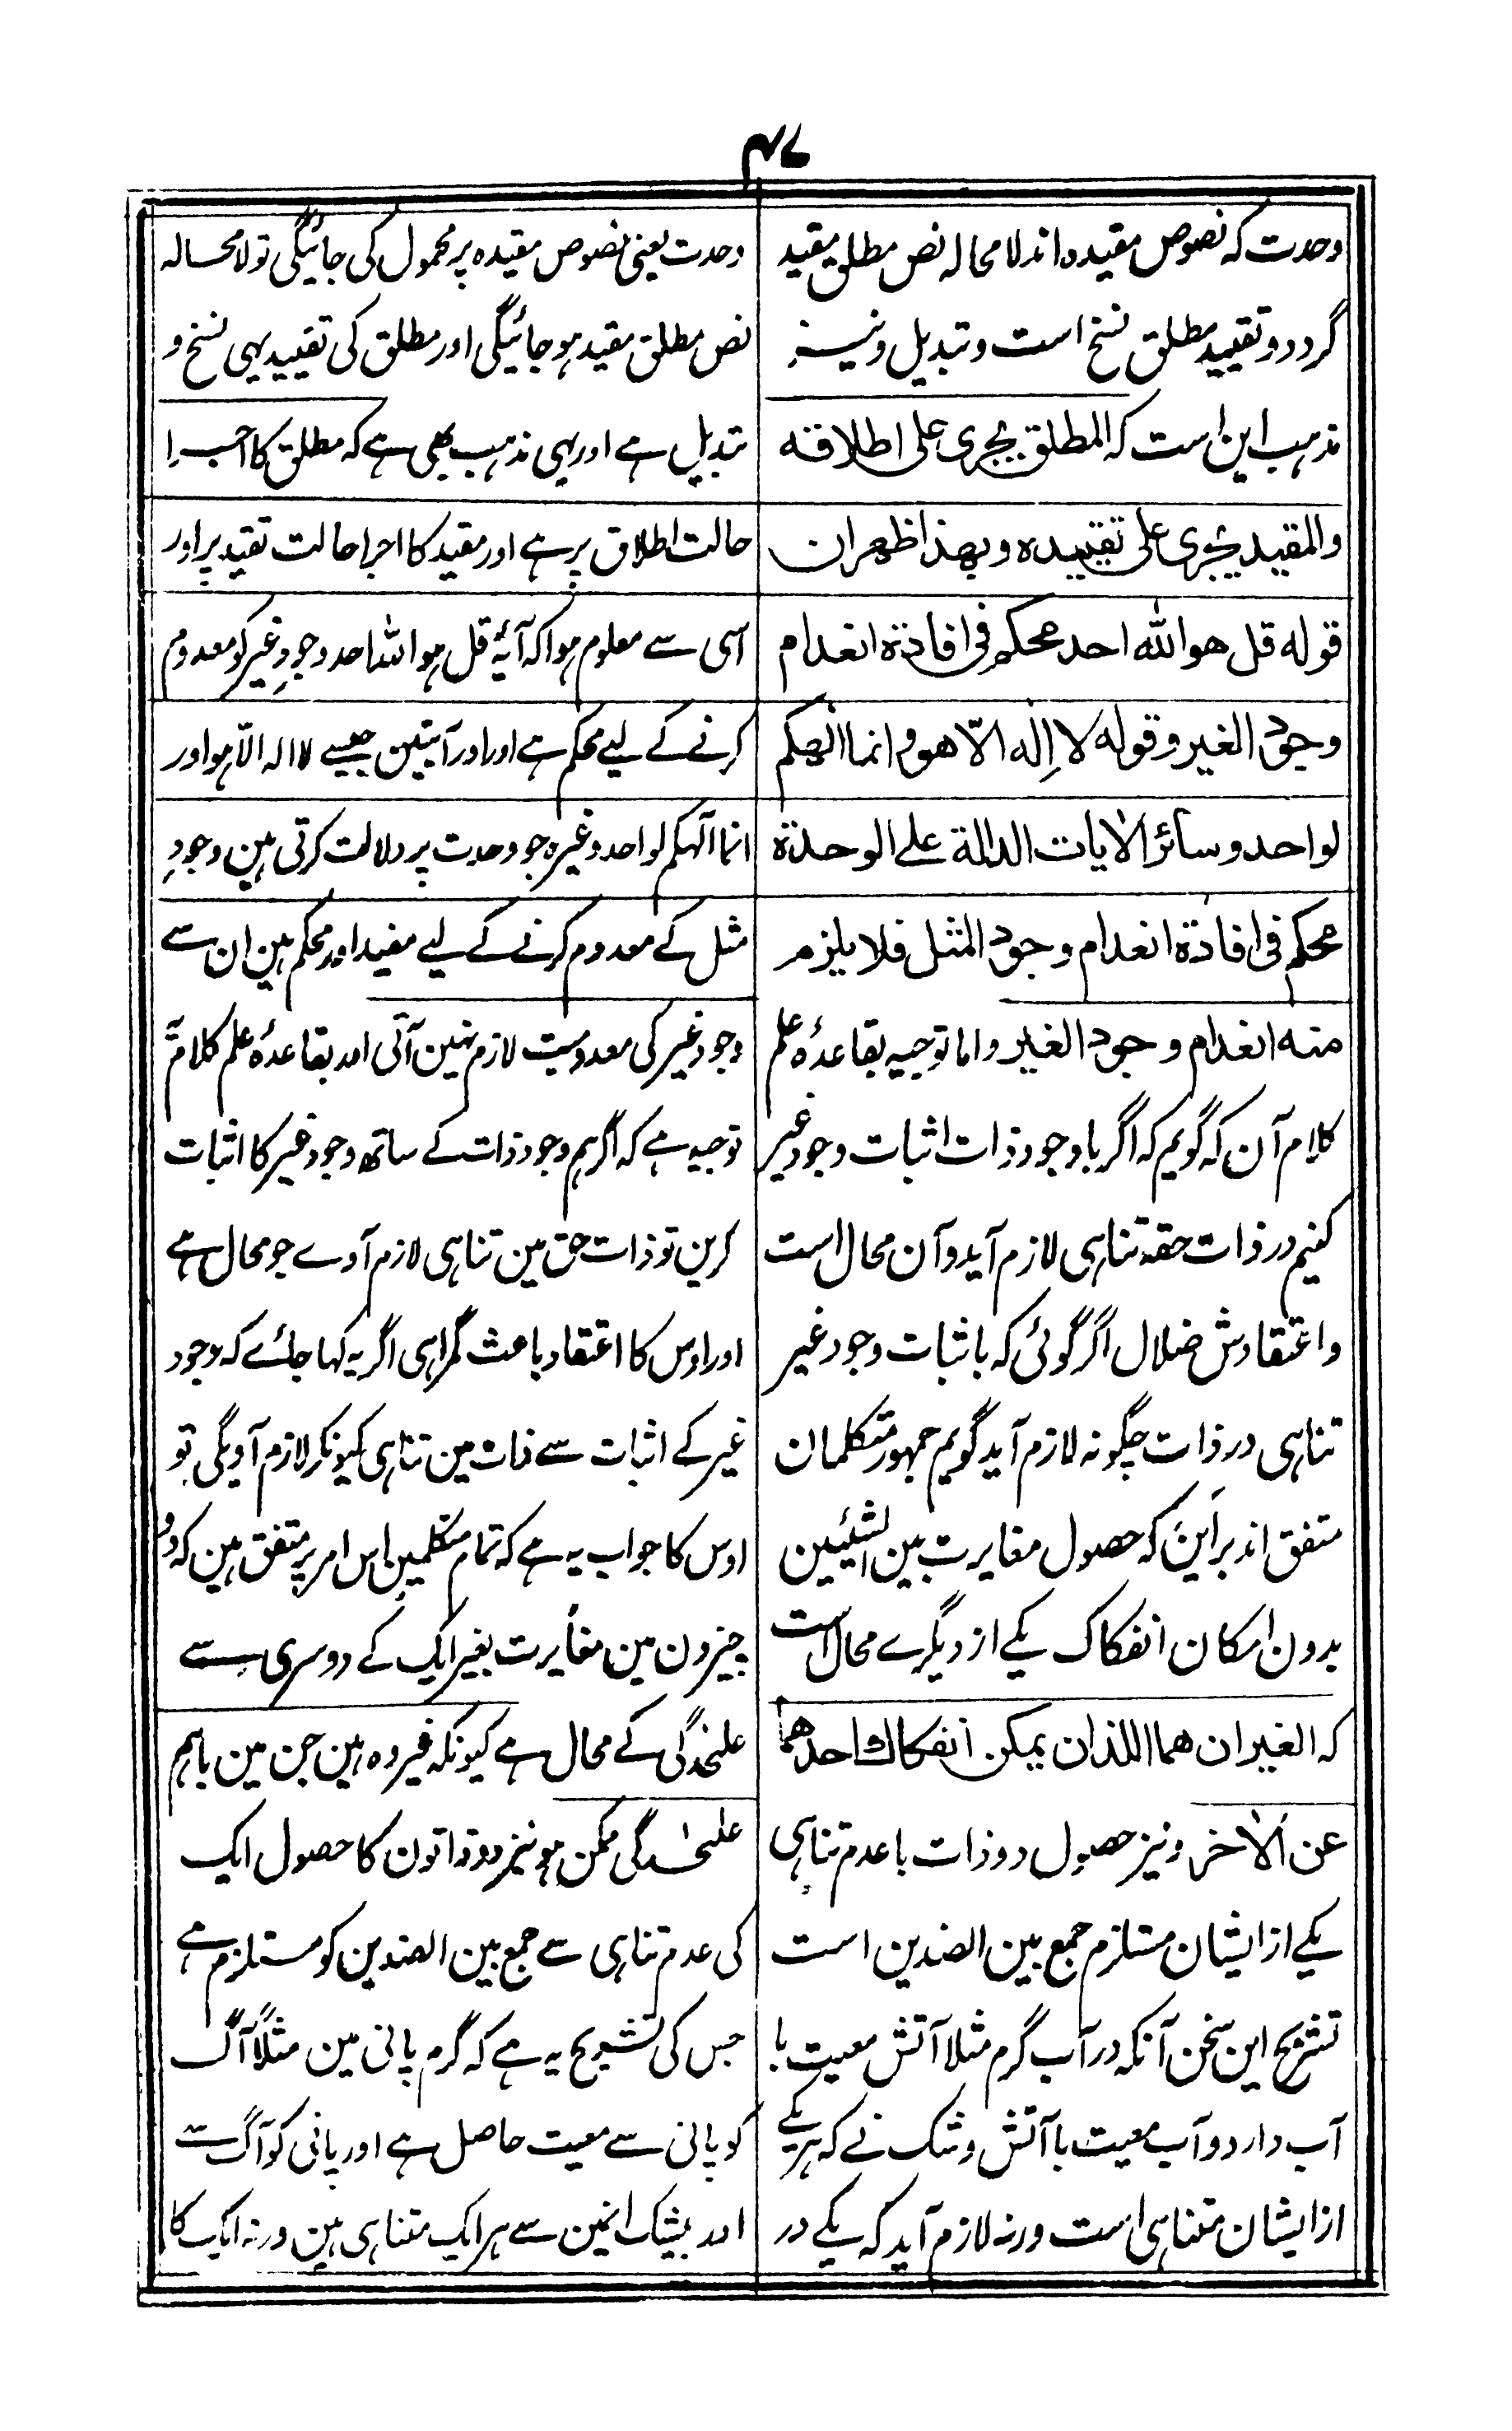 ۴۷
وحدت کہ نصوص مقیدہ اند لا محالہ نص مطلق مقید
گردد و تقیید مطلق نسخ است و تبدیل و نیز
مذہب این است کہ المطلق یجری علی اطلاقہ
والمقید یجری علی تقییدہ وبھذا ظھر ان
قولہ قل ھو اللہ احد محکم فی افادۃ انعدام
وجود الغیر وقولہ لا اِلٰہ الّا ھو و انما الٰھکم
لواحد وسائر الاٰیات الدالۃ علی الوحدۃ
محکم فی افادۃ انعدام وجود المثل فلا یلزم
منہ انعدام وجود الغیر واما توجیہ بقاعدۂ علم
کلام آن کہ گویم کہ اگر با وجود ذات اثبات وجود غیر
کنیم در ذات حقہ تناہی لازم آید و آن محال است
و اعتقادش ضلال اگر گوئی کہ باثبات وجود غیر
تناہی در ذات چگونہ لازم آید گویم جمہور متکلمان
متفق اند بر این کہ حصول مغایرت بین الشیئین
بدون امکان انفکاک یکے از دیگرے محال است
کہ الغیران ھما اللذان یمکن انفکاک احدھما
عن الاٰخر و نیز حصول دو ذات با عدم تناہی
یکے از ایشان مستلزم جمع بین الضدین است
تشریح این سخن آنکہ در آب گرم مثلا آتش معیت با
آب دارد و آب معیت با آتش و شک نے کہ ہر یکے
از ایشان متناہی است ورنہ لازم آید کہ یکے در
وحدت یعنی نصوص مقیدہ پر محمول کی جائیگی تو لا محالہ
نص مطلق مقید ہو جائیگی اور مطلق کی تقیید یہی نسخ و
تبدیل ہے اور یہی مذہب بھی ہے کہ مطلق کا اجرا
حالت اطلاق پر ہے اور مقید کا اجرا حالت تقید پر اور
اسی سے معلوم ہوا کہ آیۂ قل ہو اللہ احد وجودِ غیر کو معدوم
کرنے کے لیے محکم ہے اور اور آیتین جیسے لا الہ الّا ہو اور
انما آلہکم لواحد وغیرہ جو وحدت پر دلالت کرتی ہین وجودِ
مثل کے معدوم کرنے کے لیے مفید اور محکم ہین ان سے
وجود غیر کی معدومیت لازم نہین آتی اور بقاعدۂ علم کلام یہ
توجیہ ہے کہ اگر ہم وجود ذات کے ساتھ وجود غیر کا اثبات
کرین تو ذات حق مین تناہی لازم آوے جو محال ہے
اور اوس کا اعتقاد باعث گمراہی اگر یہ کہا جائے کہ وجود
غیر کے اثبات سے ذات مین تناہی کیونکر لازم آویگی تو
اوس کا جواب یہ ہے کہ تمام متکلمین اس امر پر متفق ہین کہ دو
چیزون مین مغایرت بغیر ایک کے دوسری سے
علٰحدگی کے محال ہے کیونکہ غیر وہ ہین جن مین باہم
علٰحدگی ممکن ہو نیز دو ذاتون کا حصول ایک
کی عدم تناہی سے جمع بین الضدین کو مستلزم ہے
جس کی تشریح یہ ہے کہ گرم پانی مین مثلاً آگ
کو پانی سے معیت حاصل ہے اور پانی کو آگ سے
اور بیشک انمین سے ہر ایک متناہی ہین ورنہ ایک کا